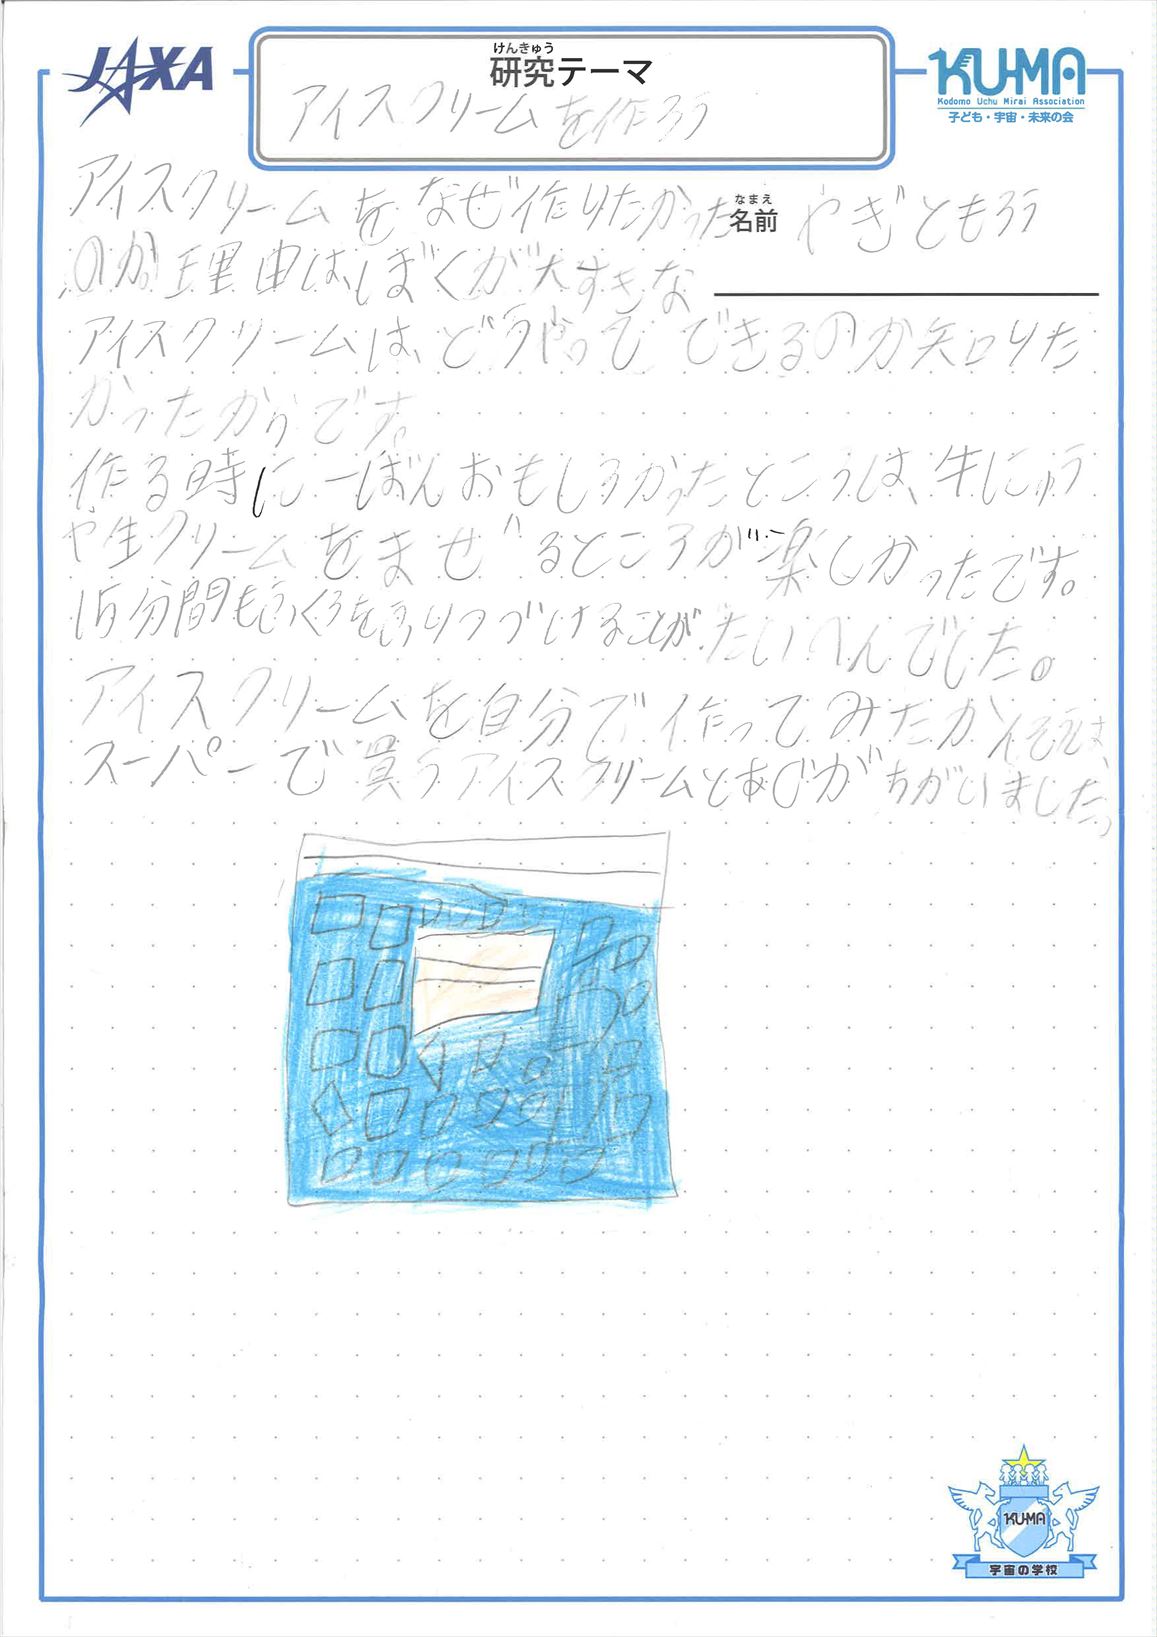 JAXA
けんきゅう
研究テーマ
KU-MA
Kodomo Uchu Mirai Association
子ども・宇宙・未来の会
アイスクリームを作ろう
なまえ
名前 やぎともろう
アイスクリームをなぜ作りたかった
のか理由は、ぼくが大すきな
アイスクリームは、どうやってできるのか知りた
かったからです。
作る時に一ばんおもしろかったところは、牛にゅう
や生クリームをまぜるところが楽しかったです。
15分間もふくろをふりつづけることがたいへんでした。
アイスクリームを自分で作ってみたかんそうは、
スーパーで買うアイスクリームとあじがちがいました。
KU-MA
宇宙の学校